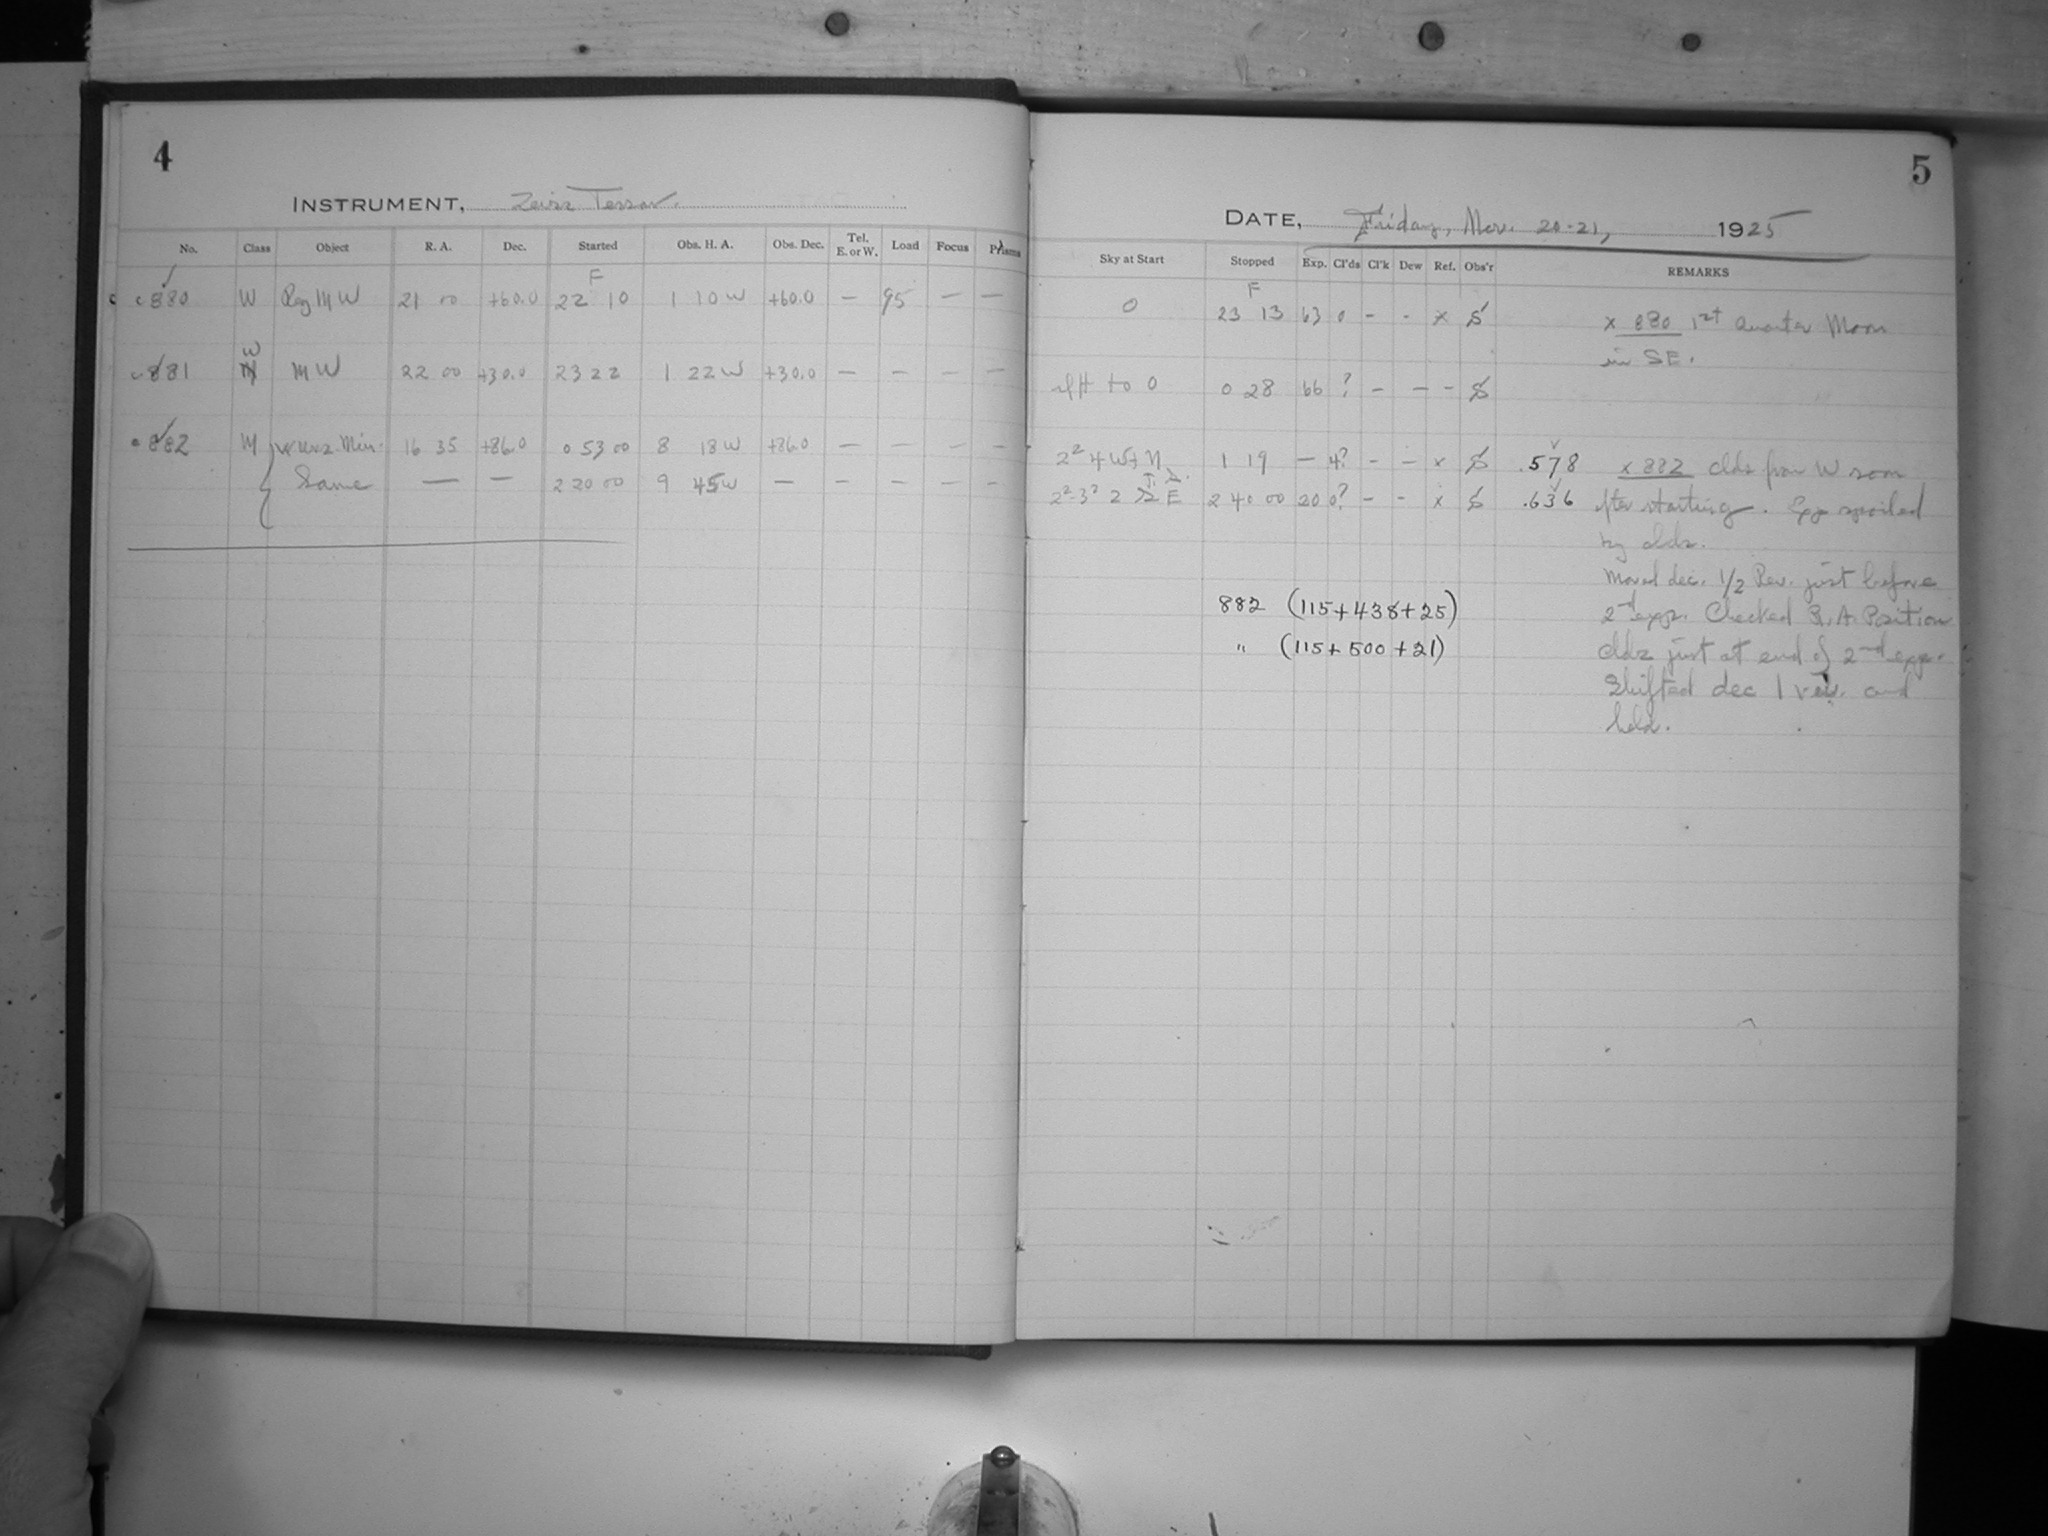 4
INSTRUMENT, Zeiss Tessar.
No. Class Object R. A. Dec. Started Obs. H. A. Obs. Dec. Tel. E. or W. Load Focus Prisms
F
880 W Reg MW 21 00 +60.0 22 10 1 10 W +60.0 — 95 — —
W
881 MW 22 00 +30.0 23 22 1 22 W +30.0 — — — —
882 M Min. 16 35 +86.0 0 53 00 8 18 W +86.0 — — — —
Same — — 2 20 00 9 45 W — — — — —
5
DATE, Friday, Nov. 20-21, 1925
Sky at Start Stopped Exp. Cl'ds Cl'k Dew Ref. Obs'r REMARKS
F
0 23 13 63 0 - - x x 880 1st Quarter Moon
in SE.
to 0 0 28 66 ? - - -
2² 4 W+N 1 19 — 4? - - x .578 x 882 clds from W soon
2²-3² 2 E 2 40 00 20 0? - - x .636 after starting. Exp spoiled
by clds.
Moved dec. 1/2 Rev. just before
882 (115+438+25) 2nd exp. Checked R.A. Position
" (115+500+21) clds just at end of 2nd exp.
Shifted dec 1 rev. and
held.